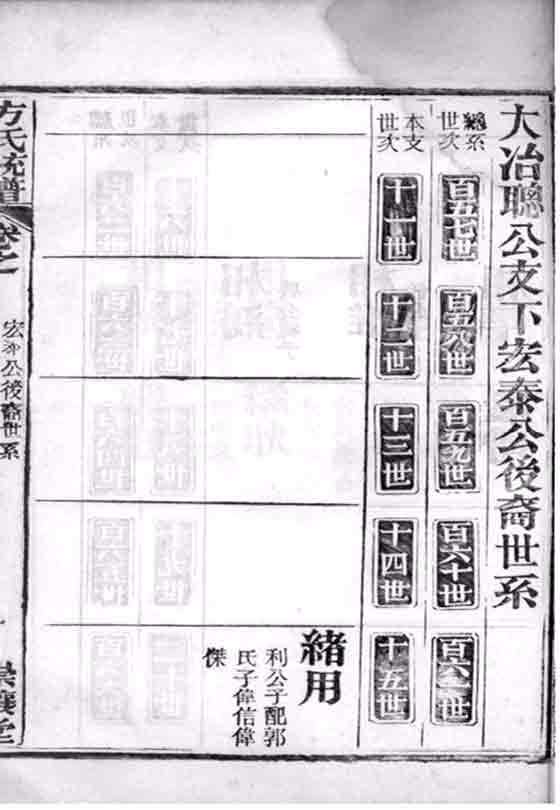 大冶聰公支下宏泰公後裔世系
總系世次
百五七世
百五八世
百五九世
百六十世
百六一世
本支世次
十一世
十二世
十三世
十四世
十五世
緒用
利公子配郭
氏子偉信偉
傑
方氏統譜
卷之
公後裔世系